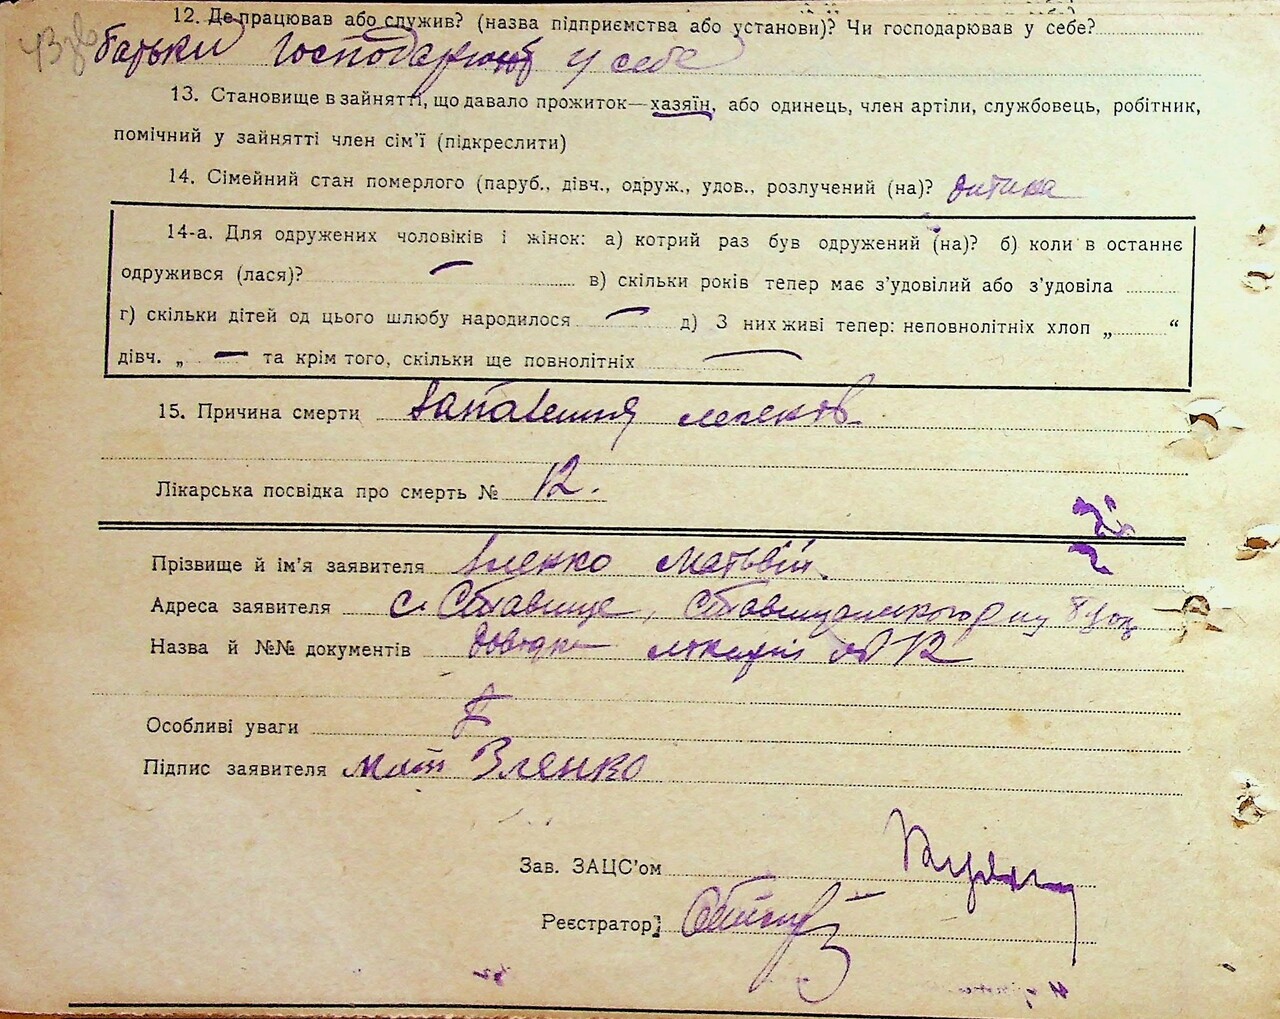 12. Де працював або служив? (назва підприємства або установи)? Чи господарював у себе?
батьки господарюють у себе
13. Становище в зайнятті, що давало прожиток—хазяїн, або одинець, член артіли, службовець, робітник,
помічний у зайнятті член сім’ї (підкреслити)
14. Сімейний стан померлого (паруб., дівч., одруж., удов., розлучений (на)? дитина
14-а. Для одружених чоловіків і жінок: а) котрий раз був одружений (на)? б) коли в останнє
одружився (лася)? — в) скільки років тепер має з’удовілий або з’удовіла
г) скільки дітей од цього шлюбу народилося — д) З них живі тепер: неповнолітніх хлоп „ “
дівч. „ — та крім того, скільки ще повнолітніх —
15. Причина смерти запалення легенів
Лікарська посвідка про смерть № 12.
Прізвище й ім’я заявителя Зленко Матвій.
Адреса заявителя с. Ставище, Ставищанського р-ну
Назва й №№ документів довідка лікарні № 12
Особливі уваги
Підпис заявителя Мат Зленко
Зав. ЗАЦС’ом
Реєстратор